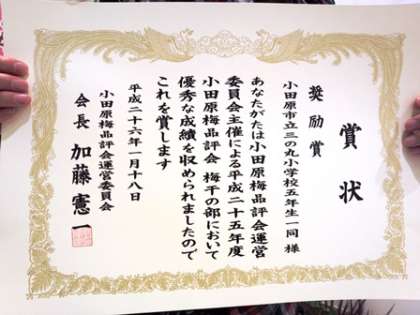 賞状
奨励賞
小田原市立三の丸小学校五年生一同 様
あなたがたは小田原梅品評会運営
委員会主催による平成二十五年度
小田原梅品評会 梅干の部において
優秀な成績を収められましたので
これを賞します
平成二十六年一月十八日
小田原梅品評会運営委員会
会長 加藤憲一